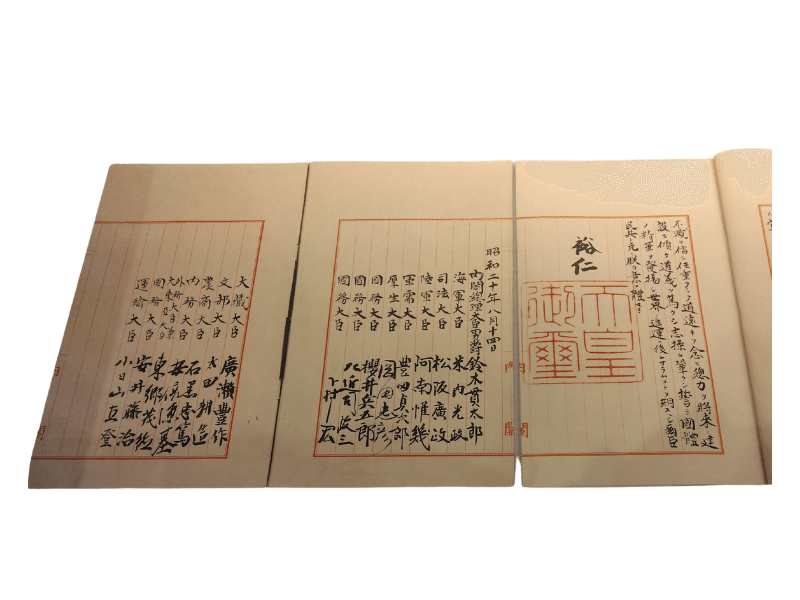 不滅ヲ信シ任重クシテ道遠キヲ念ヒ總力ヲ將來ノ建
設ニ傾ケ道義ヲ篤クシ志操ヲ鞏クシ誓テ國體
ノ精華ヲ發揚シ世界ノ進運ニ後レサラムコトヲ期スヘシ爾臣
民其レ克ク朕カ意ヲ體セヨ
裕仁
天皇
御璽
內閣
昭和二十年八月十四日
內閣總理大臣男爵 鈴木貫太郎
海軍大臣 米內光政
司法大臣 松阪廣政
陸軍大臣 阿南惟幾
軍需大臣 豊田貞次郎
厚生大臣 岡田忠彥
國務大臣 櫻井兵五郎
國務大臣 左近司政三
國務大臣 下村宏
大藏大臣 廣瀨豊作
文部大臣 太田耕造
農商大臣 石黑忠篤
內務大臣 安倍源基
外務大臣兼
大東亞大臣 東鄕茂德
國務大臣 安井藤治
運輸大臣 小日山直登